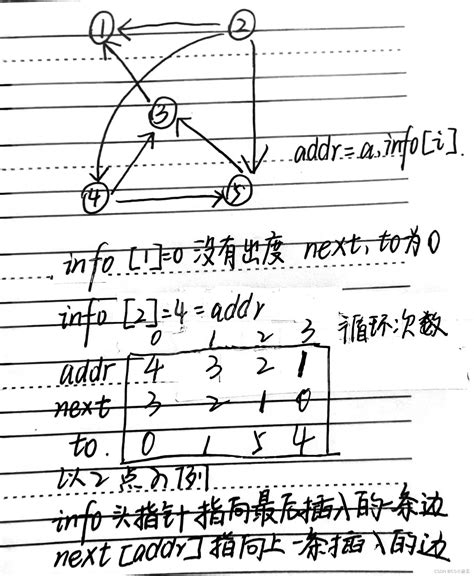 1 2
3
addr=a.info[i].
4 5
info [1]=0 没有出度 next, to为0
info [2]=4=addr
0 1 2 3 循环次数
addr 4 3 2 1
next 3 2 1 0
to. 0 1 5 4
以2点为例
info 头指针指向最后插入的一条边
next [addr]指向上一条插入的边